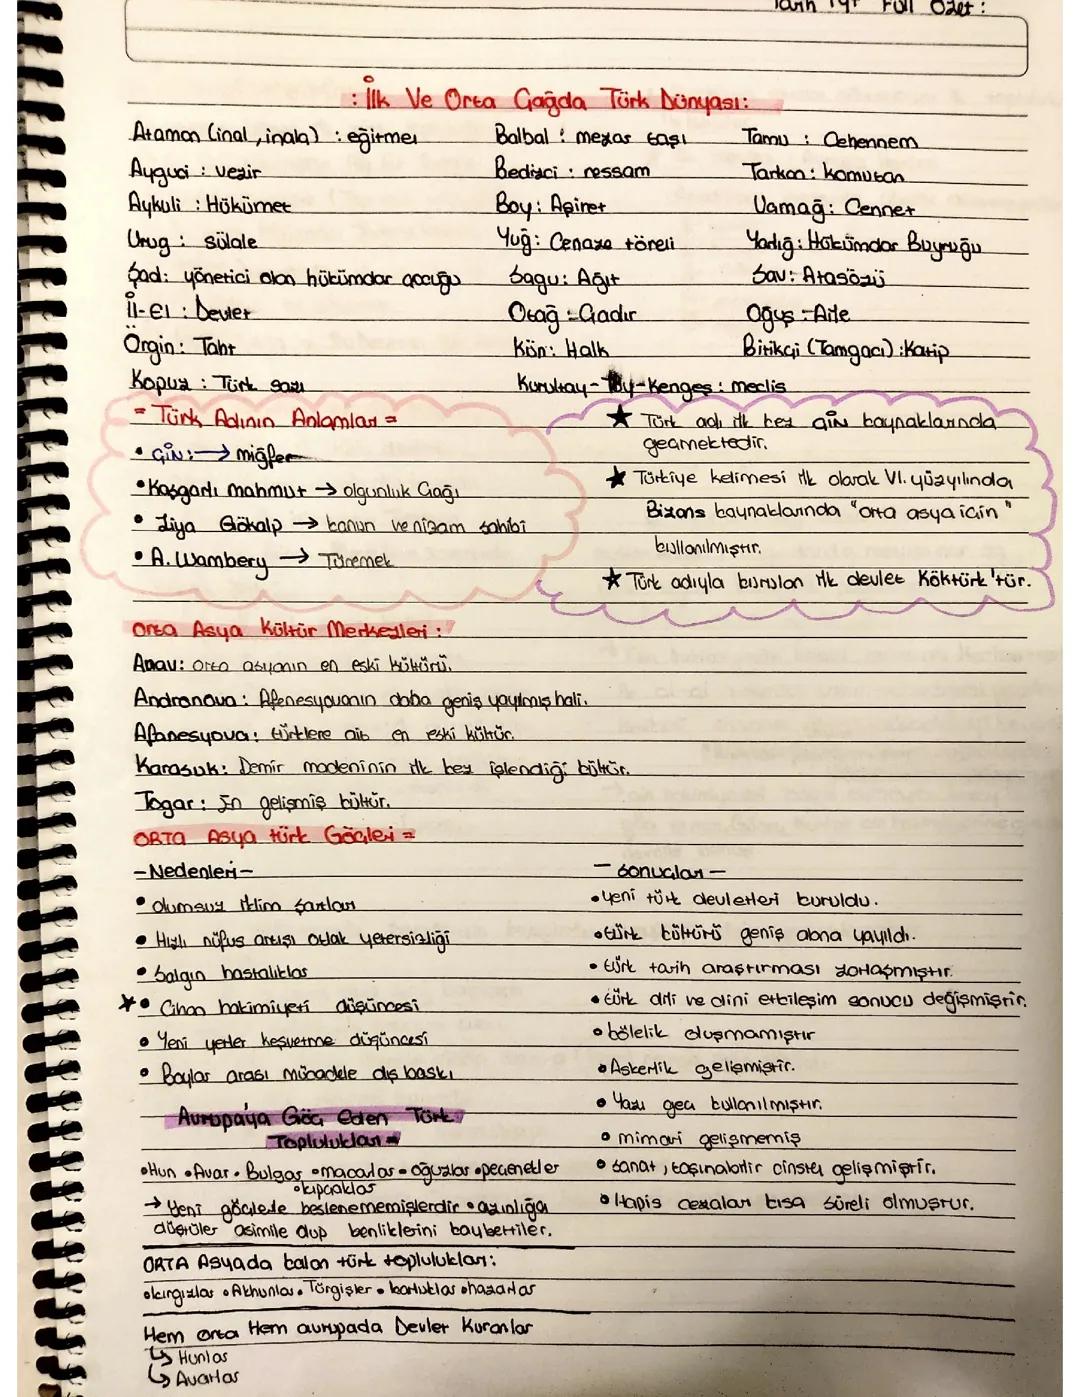 Tarih Tyt Full Özet :
: İlk Ve Orta Çağda Türk Dünyası:
Ataman (inal, inala) : eğitmen
Balbal : mezar taşı
Tamu : Cehennem
Ayguci : vezir
Bedizci : ressam
Tarkan : komutan
Aykuli : Hükümet
Boy : Aşiret
Uamağ : Cennet
Urug : sülale
Yuğ : Cenaze töreli
Yarlığ : Hükümdar Buyruğu
Şad : yönetici olan hükümdar çocuğu
Sagu : Ağıt
Sav : Atasözü
İl-el : Devlet
Otağ : Çadır
Oğuş : Aile
Örgin : Taht
Kün : Halk
Bitikçi (Tamgacı) : Katip
Kopuz : Türk sazı
Kurultay - Toy - Kengeş : meclis
= Türk Adının Anlamları =
• ÇİN : → miğfer
• Kaşgarlı mahmut → olgunluk Çağı
• Ziya Gökalp → kanun ve nizam sahibi
• A. Wambery → Türemek
★ Türk adı ilk kez ÇİN kaynaklarında
geçmektedir.
★ Türkiye kelimesi ilk olarak VI. yüzyılında
Bizans kaynaklarında "orta asya için"
kullanılmıştır.
★ Türk adıyla kurulan ilk devlet Köktürk'tür.
Orta Asya Kültür Merkezleri :
Anav : orta asyanın en eski kültürü.
Andronova : Afanesyovanın daha geniş yayılmış hali.
Afanesyova : türklere ait en eski kültür.
Karasuk : Demir madeninin ilk kez işlendiği kültür.
Togar : En gelişmiş kültür.
ORTA Asya türk Göçleri =
- Nedenleri -
• olumsuz iklim şartları
• Hızlı nüfus artışı otlak yetersizliği
• Salgın hastalıklar
★• Cihan hakimiyeti düşüncesi
• Yeni yerler keşvetme düşüncesi
• Boylar arası mücadele dış baskı
- Sonuçları -
• yeni türk devletleri kuruldu.
• türk kültürü geniş alana yayıldı.
• türk tarih araştırması zorlaşmıştır.
• türk dili ve dini etkileşim sonucu değişmiştir.
• bölelik oluşmamıştır
• Askerlik gelişmiştir.
• Yazı geç kullanılmıştır.
• mimari gelişmemiş
• Sanat, taşınabilir cinsten gelişmiştir.
• Hapis cezaları kısa süreli olmuştur.
Avrupa'ya Göç Eden Türk
Toplulukları =
• Hun • Avar • Bulgar • macarlar • oğuzlar • peçenekler
• kıpçaklar
→ Yeni göçlerle beslenememişlerdir • azınlığa
düştüler asimile olup benliklerini kaybettiler.
ORTA Asyada kalan türk toplulukları :
• kırgızlar • Akhunlar • Türgişler • karluklar • hazarlar
Hem orta Hem avrupada Devlet Kuranlar
↳ Hunlar
↳ Avarlar